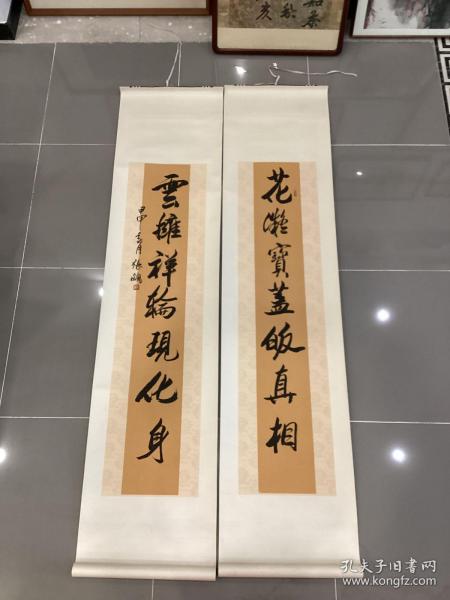 花凝寶蓋皈真相
雲擁祥輪現化身
甲申
孔夫子旧书网
www.kongfz.com